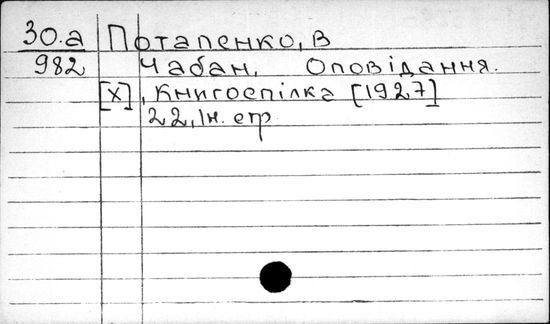 30.а Потапенко, В
982 Чабан. Оповідання.
[Х], Книгоспілка [1927]
22, Ін. стр